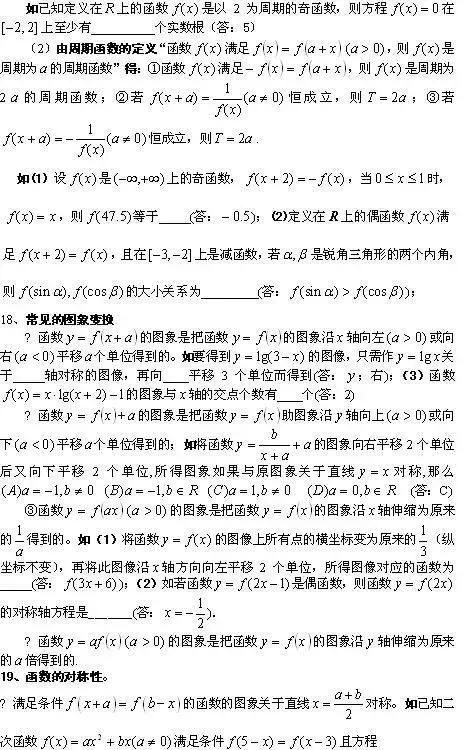 如已知定义在R上的函数f(x)是以 2 为周期的奇函数，则方程f(x)=0在
[−2,2]上至少有__________个实数根（答：5）
（2）由周期函数的定义“函数f(x)满足f(x)=f(a+x)(a>0)，则f(x)是
周期为a的周期函数”得：①函数f(x)满足−f(x)=f(a+x)，则f(x)是周期为
2a的周期函数；②若f(x+a)=1/f(x)(a≠0)恒成立，则T=2a；③若
f(x+a)=−1/f(x)(a≠0)恒成立，则T=2a.
如(1) 设f(x)是(−∞,+∞)上的奇函数，f(x+2)=−f(x)，当0≤x≤1时，
f(x)=x，则f(47.5)等于_____(答：−0.5)；(2)定义在R上的偶函数f(x)满
足f(x+2)=f(x)，且在[−3,−2]上是减函数，若α,β是锐角三角形的两个内角，
则f(sinα),f(cosβ)的大小关系为_________(答：f(sinα)>f(cosβ))；
18、常见的图象变换
? 函数y=f(x+a)的图象是把函数y=f(x)的图象沿x轴向左(a>0)或向
右(a<0)平移a个单位得到的。如要得到y=lg(3−x)的图像，只需作y=lgx关
于_____轴对称的图像，再向____平移 3 个单位而得到(答：y；右)；（3）函数
f(x)=x·lg(x+2)−1的图象与x轴的交点个数有____个(答：2)
? 函数y=f(x)+a的图象是把函数y=f(x)助图象沿y轴向上(a>0)或向
下(a<0)平移a个单位得到的；如将函数y=b/(x+a)+a的图象向右平移2个单位
后又向下平移 2 个单位,所得图象如果与原图象关于直线y=x对称,那么
(A)a=−1,b≠0 (B)a=−1,b∈R (C)a=1,b≠0 (D)a=0,b∈R (答：C)
③函数y=f(ax)(a>0)的图象是把函数y=f(x)的图象沿x轴伸缩为原来
的1/a得到的。如（1）将函数y=f(x)的图像上所有点的横坐标变为原来的1/3（纵
坐标不变），再将此图像沿x轴方向向左平移 2 个单位，所得图像对应的函数为
_____(答：f(3x+6))；（2）如若函数y=f(2x−1)是偶函数，则函数y=f(2x)
的对称轴方程是_______(答：x=−1/2)．
? 函数y=af(x)(a>0)的图象是把函数y=f(x)的图象沿y轴伸缩为原来
的a倍得到的.
19、函数的对称性。
? 满足条件f(x+a)=f(b−x)的函数的图象关于直线x=(a+b)/2对称。如已知二
次函数f(x)=ax²+bx(a≠0)满足条件f(5−x)=f(x−3)且方程